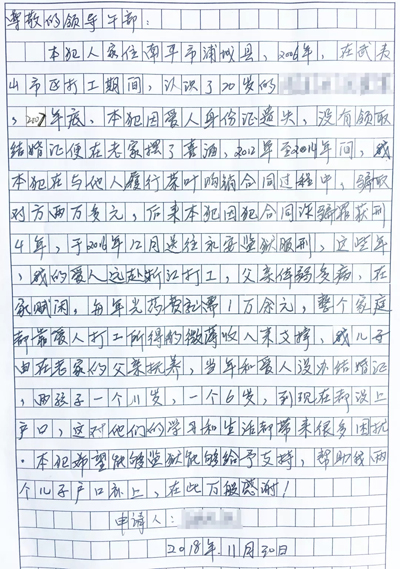 尊敬的领导干部：
本犯人家住南平市浦城县，2006年，在武夷
山市区打工期间，认识了20岁的
，2007年底，本犯因爱人身份证遗失，没有领取
结婚证便在老家摆了喜酒，2012年至2014年间，我
本犯在与他人履行茶叶购销合同过程中，骗取
对方两万多元，后来本犯因犯合同诈骗罪获刑
4年，于2016年12月送往永安监狱服刑，这些年
，我的爱人远赴浙江打工，父亲体弱多病，在
家赋闲，每年光药费就需1万余元，整个家庭
都靠爱人打工所得的微薄收入来支撑，我儿子
由在老家的父亲抚养，当年和爱人没办结婚证
，两孩子一个11岁，一个6岁，到现在都没上
户口，这对他们的学习和生活都带来很多困扰
．本犯希望能够监狱能够给予支持，帮助我两
个儿子户口办上，在此万般感谢！
申请人：
2018年.11月30日